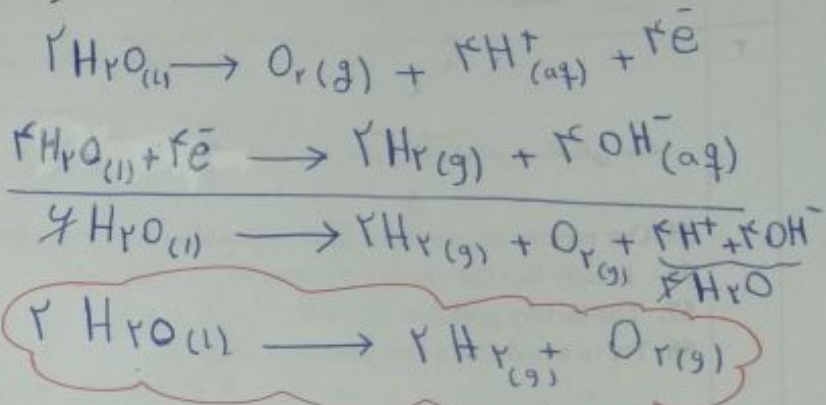 ۲H۲O(l) → O۲(g) + ۴H⁺(aq) + ۴ē
۴H۲O(l) + ۴ē → ۲H۲(g) + ۴OH⁻(aq)
۶H۲O(l) → ۲H۲(g) + O۲(g) + ۴H⁺ + ۴OH⁻
۴H۲O
۲H۲O(l) → ۲H۲(g) + O۲(g)